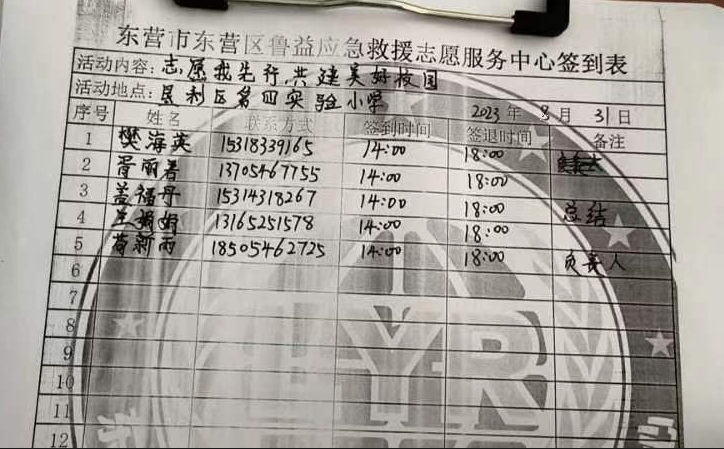 东营市东营区鲁益应急救援志愿服务中心签到表
活动内容：志愿我先行，共建美好校园
活动地点：垦利区第四实验小学
2023 年 8 月 31 日
序号 姓名 联系方式 签到时间 签退时间 备注
1 樊海英 15318339165 14:00 18:00
2 胥丽春 13705467755 14:00 18:00
3 盖福丹 15314318267 14:00 18:00 总结
4 娟娟 13165251578 14:00 18:00
5 新雨 18505462725 14:00 18:00 负责人
6
7
8
9
10
11
12
YR